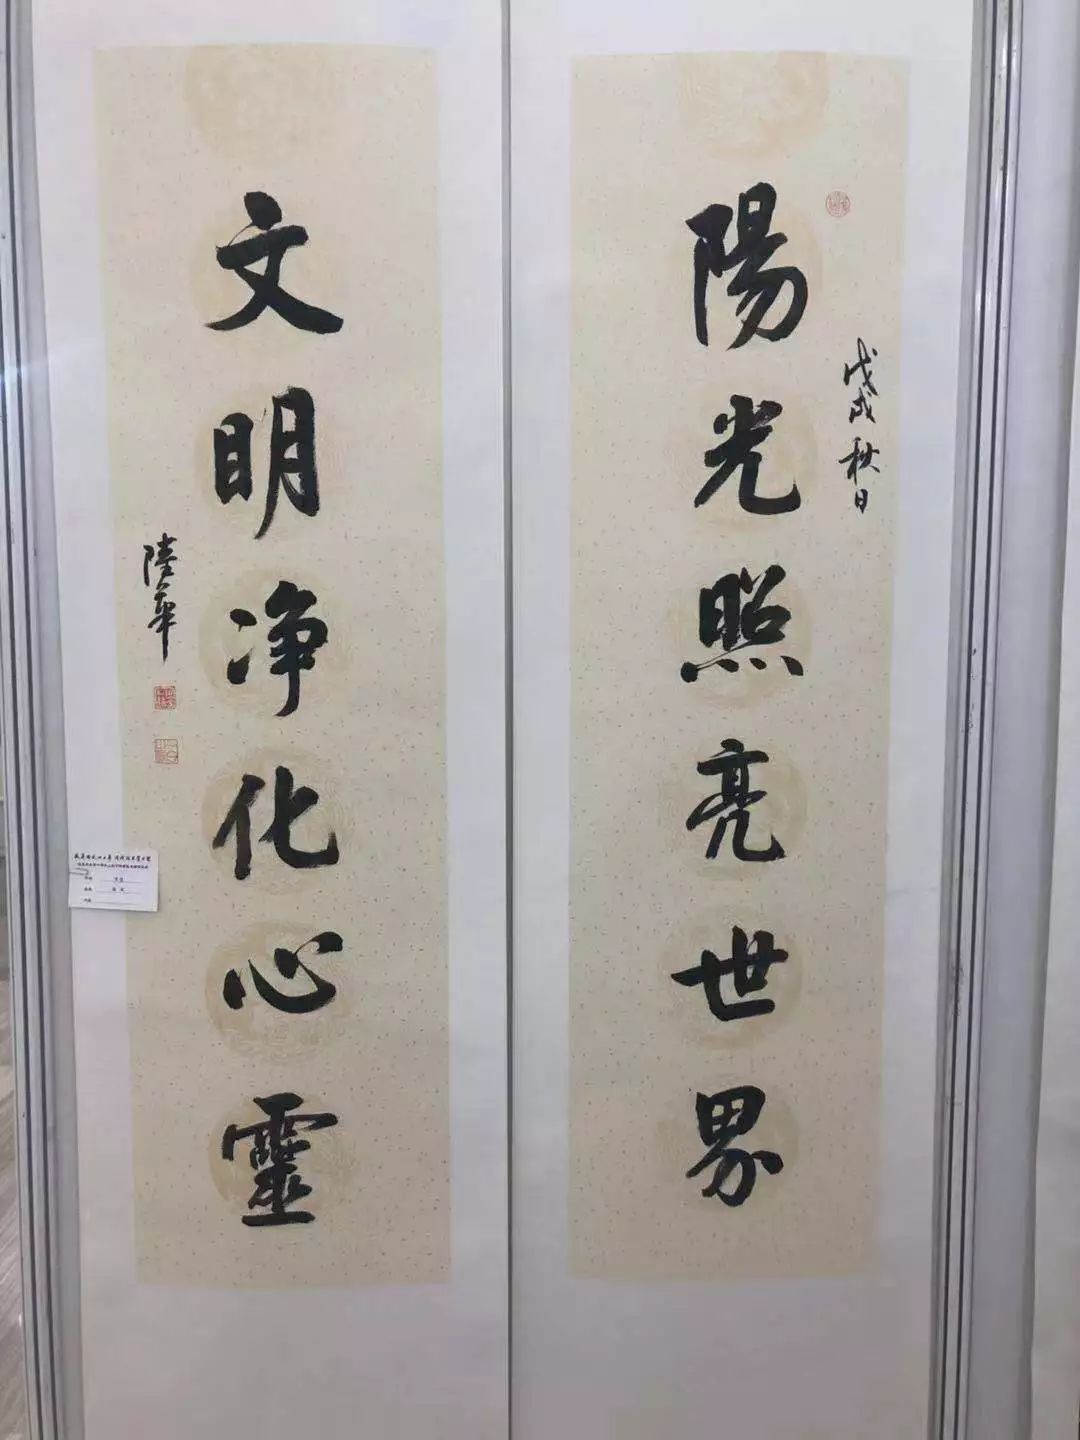 陽光照亮世界
戊戌秋日
文明净化心靈
陸華